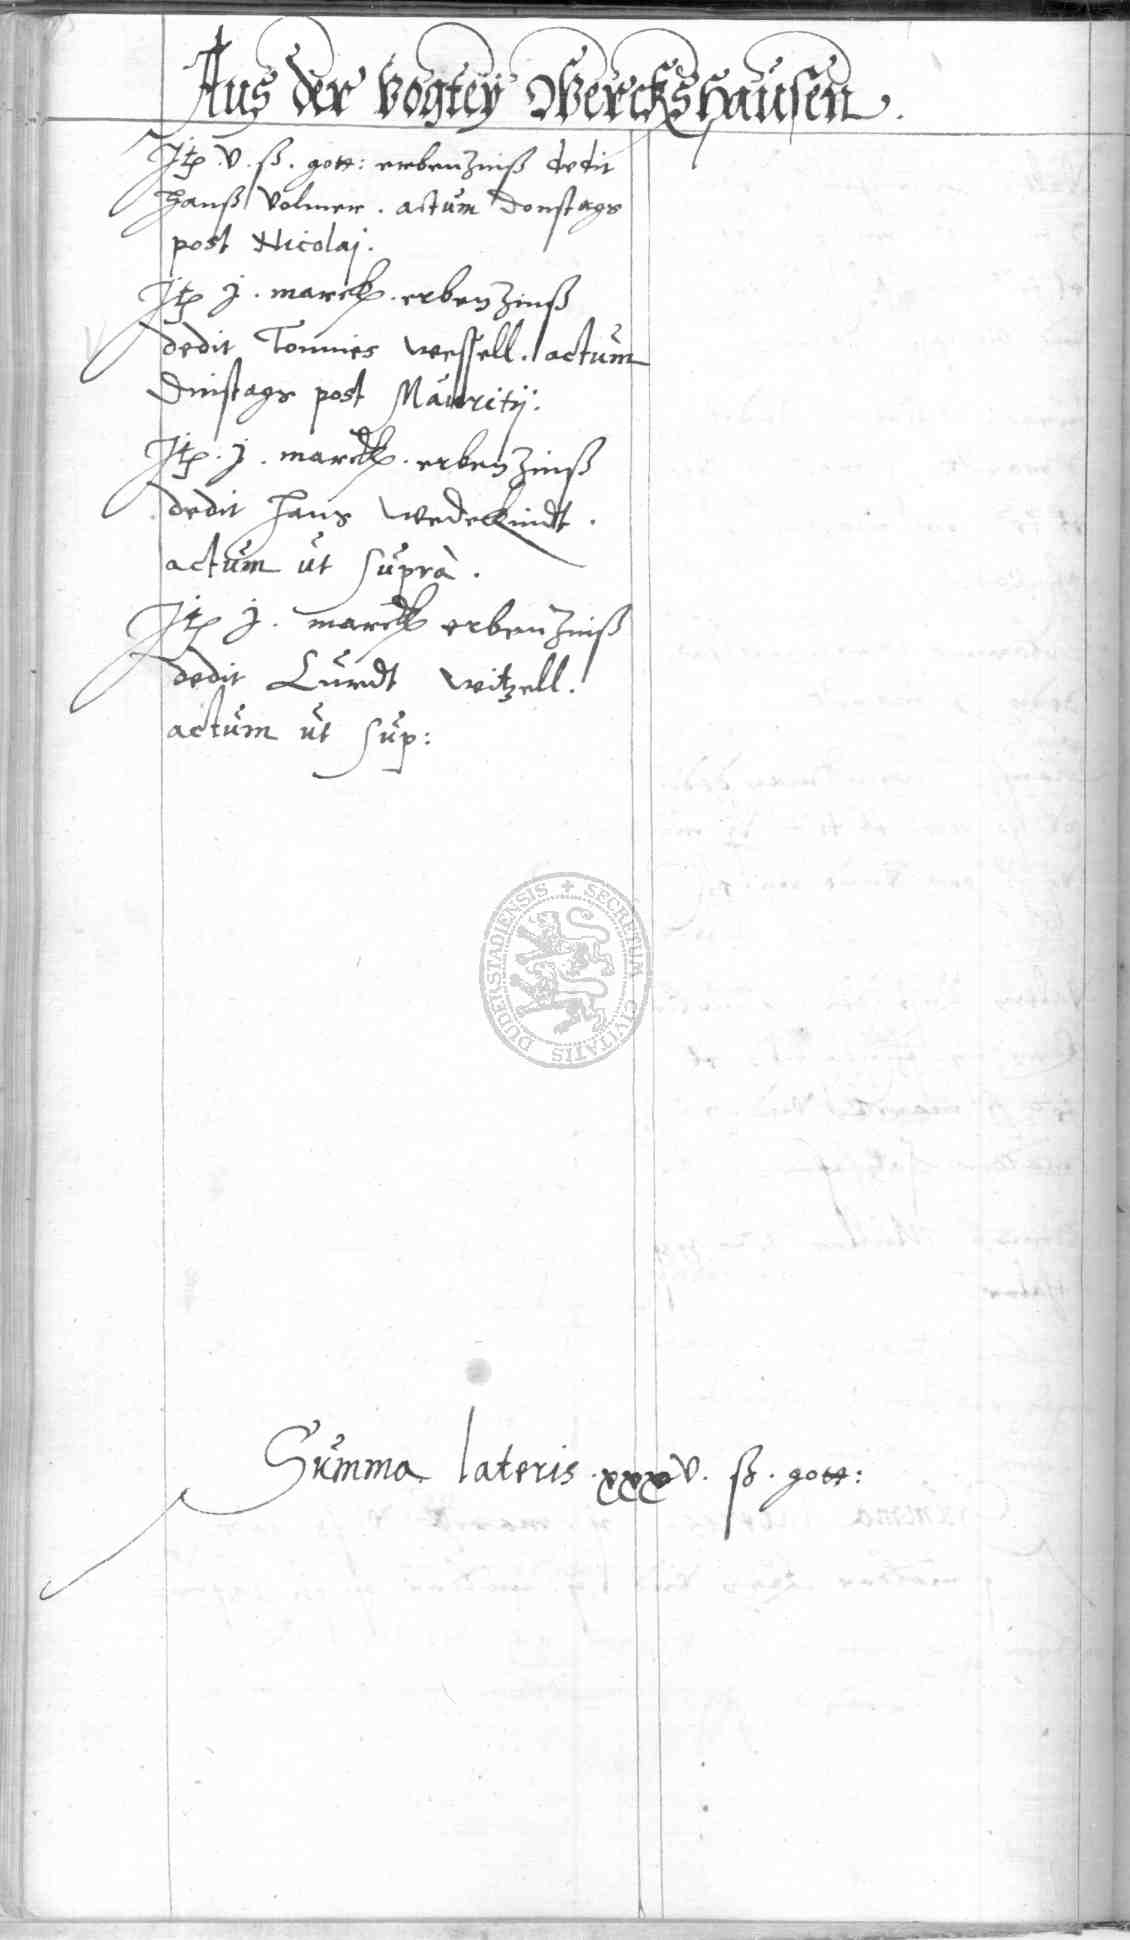 Aus der Vogtey Werckshausen.
Jtp. v. ß. gott: erbenzinß dedit
Hanß Volmer. actum donstags
post Nicolaj.
Jtp j. marck. erbenzinß
dedit Tonnies Wessell. actum
Dinstags post Mauritij:
Jtp. j. marck. erbenzinß
dedit Hans Wedekindt.
actum ut suprà.
Jtp j. marck erbenzinß
dedit Curdt Witzell.
actum ut sup:
SECRETUM CIVITATIS DUDERSTADIENSIS
Summa lateris .xxxv. ß. gott: